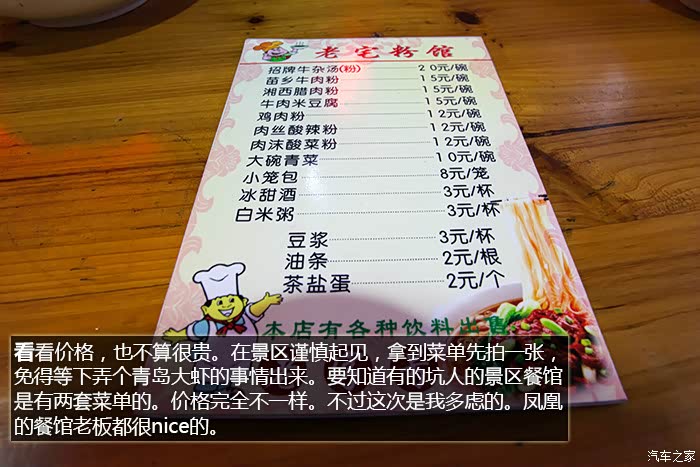 老宅粉馆
招牌牛杂汤(粉) 20元/碗
苗乡牛肉粉 15元/碗
湘西腊肉粉 15元/碗
牛肉米豆腐 15元/碗
鸡肉粉 12元/碗
肉丝酸辣粉 12元/碗
肉沫酸菜粉 12元/碗
大碗青菜 10元/碗
小笼包 8元/笼
冰甜酒 3元/杯
白米粥 3元/杯
豆浆 3元/杯
油条 2元/根
茶盐蛋 2元/个
本店有各种饮料出售
看看价格，也不算很贵。在景区谨慎起见，拿到菜单先拍一张，
免得等下弄个青岛大虾的事情出来。要知道有的坑人的景区餐馆
是有两套菜单的。价格完全不一样。不过这次是我多虑的。凤凰
的餐馆老板都很nice的。
汽车之家